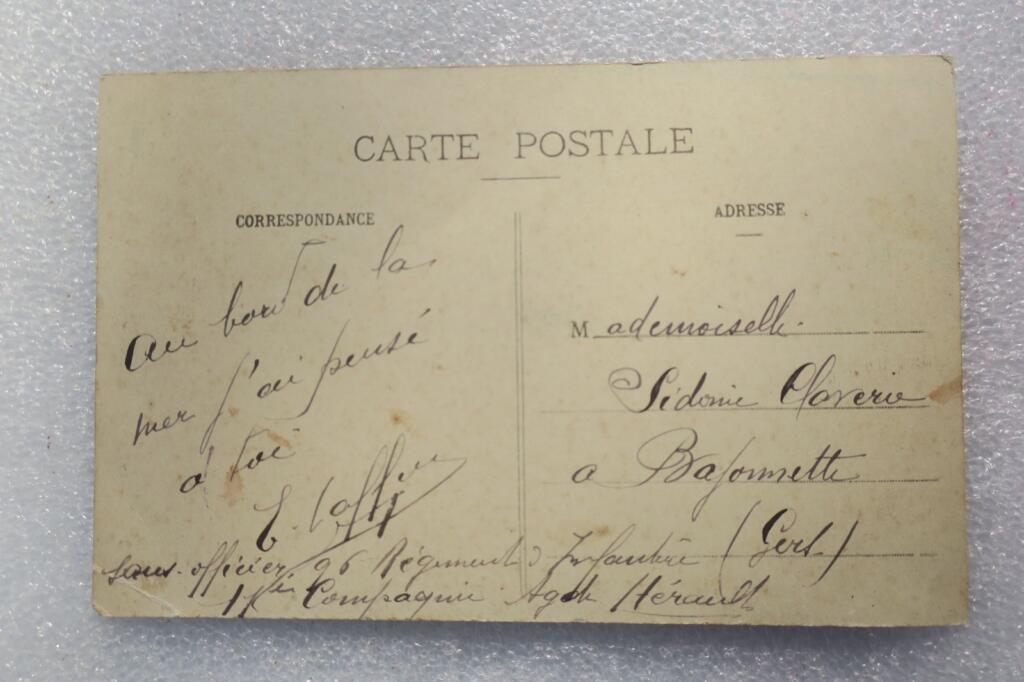 CARTE POSTALE
CORRESPONDANCE
Au bord de la
mer j'ai pensé
a toi
sous-officier 96 Régiment d Infanterie
Compagnie Agde Hérault
ADRESSE
Mademoiselle
Sidonie Claverie
a Bajonnette
(Gers)